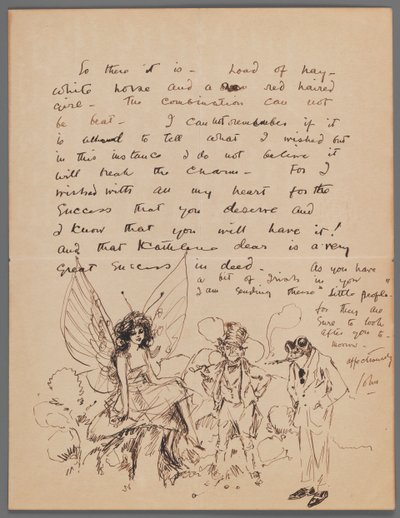 So there it is – Load of hay –
white horse and a red haired
girl – The combination can not
be beat – I can not remember if it
is allowed to tell what I wished but
in this instance I do not believe it
will break the charm – For I
wished with all my heart for the
Success that you deserve and
I know that you will have it!
and that Kathleen dear is a very
Great Success in deed – As you have
a bit of Irish in you
I am sending these "little people"
for they are
sure to look
after you to-
morrow.
affectionately